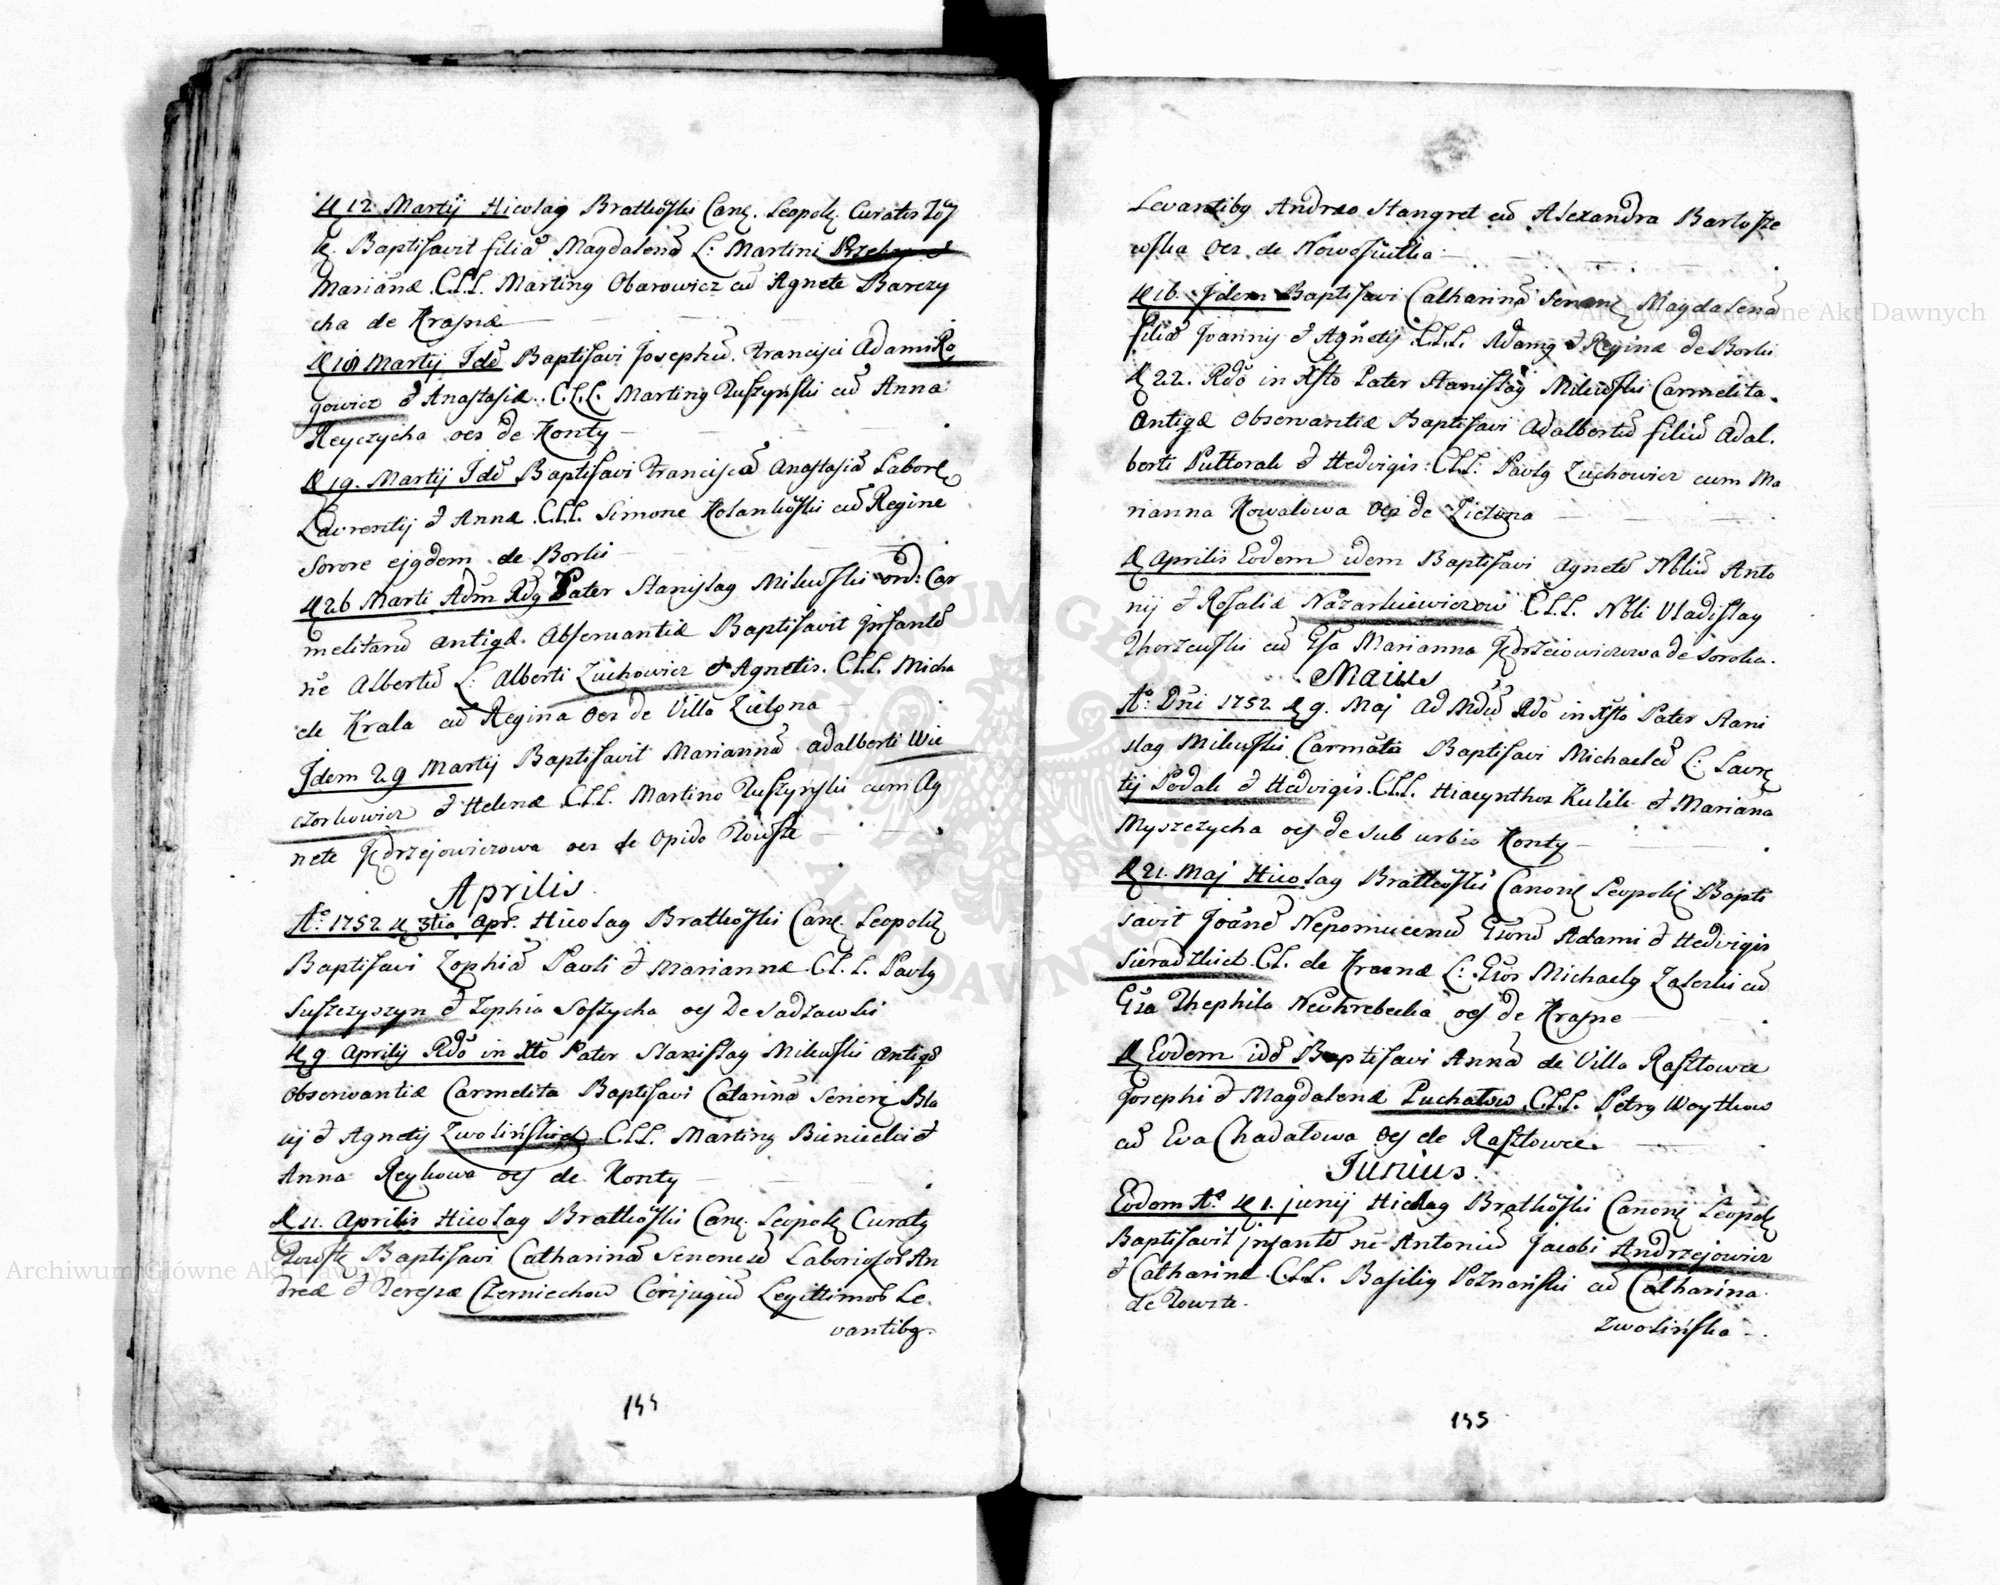 12. Martij Nicolaq Bratkoski Canc. Leopolc. Curatus Tou
Baptisavit filiã Magdalenã L: Martini Przekop &
Marianæ C.L.L. Martinq Obarowicz cũ Agnete Barczy
cha de Krasne
Martij Idẽ Baptisavi Josephũ Francisci Adami Ro
gowicz & Anastasiæ C.L.L. Martinq Ruszynski cũ Anna
Reyczycha oes de Konty
19. Martij Idẽ Baptisavi Franciscã Anastasiã Labore
Laurentij & Annæ C.L.L. Simone Kolankoski cũ Regine
Sorore ejqdem de Borki
26 Marti Adm Rdq Pater Stanislaq Milewski ord: Car
melitarũ antiqæ Observantiæ Baptisavit Infantẽ
nẽ Albertũ L: Alberti Zuchowicz & Agnetis. C.L.L. Micha
de Krala cũ Regina oes de Villa Zielona
Idem 29 Martij Baptisavit Mariannã adalberti Wie
czorkowicz & Helenæ C.L.L. Martino Ruszynski cum Ag
nete Jędrzejowiczowa oes de Opido Touste
Aprilis
Aº 1752 3tia Apr. Nicolaq Bratkoski Canc. Leopolc
Baptisavi Zophiã Pauli & Mariannæ C.L.L. Paulq
Suszczyszyn & Zophia Soszycha oes de Sadzawki
9. Aprilij Rdo in Xto Pater Stanislaq Milewski antiqæ
Observantiæ Carmelita Baptisavi Catarinã Senenc Bla
sij & Agnetij Zwolinskich C.L.L. Martinq Bieniecki &
Anna Reykowa oes de Konty
11. Aprilis Nicolaq Bratkoski Canc. Leopolc Curatq
Toustc Baptisavi Catharinã Senensẽ Laboriosor An
dreæ & Teresæ Czerniechow Conjugũ Legittimor Le.
vantibq.
144
Levantibq Andreo Stangret cũ Alexandra Bartosze
wska oes de Nowosiułka
16. Idem Baptisavi Catharinã Senenc Magdalenã
filiã Joannij & Agnetij C.L.L. Adamq & Reginæ de Borki
22. Rdo in Xsto Pater Stanislaq Milewski Carmelita
Antiqæ Observantiæ Baptisavi Adalbertũ filiũ Adal.
berti Puttorak & Hedvigis: C.L.L: Paulq Zuchowicz cum Ma
rianna Kowalowa oes de Zielona
Aprilis Eodem idem Baptisavi Agnetẽ Nbliũ Anto
nij & Rosaliæ Nazarkiewiczow C.L.L. Nbli Vladislaq
Thorzewski cũ Gsa Marianna Jędrzeiowiczowa de Soroka.
Maius
Aº: Dni 1752 9. Maj Ad Mdũ Rdo in Xsto Pater Stani
slaq Milewski Carmata Baptisavi Michaelẽ L: Laurẽ
tij Podale & Hedvigis. C.L.L. Hiacynthor Kulik & Marianã
Myszczycha oes de sub urbio Konty
21. Maj Nicolaq Bratkoski Canonc Leopolic Bapti
savit Joanẽ Nepomucenũ Gsorũ Adami & Hedvigis
Sieradzkich C.L. de Krasne L: Gsor Michaelq Zaleski cũ
Gsa Thephila Niewkrebecka oes de Krasne
Eodem idẽ Baptisavi Annã de Villa Rasztowce
Josephi & Magdalenæ Puchałow C.L.L. Petrq Woytkow
cũ Eva Chadałowa oes de Rasztowce.
Junius.
Eodem Aº 1. junij Nicolaq Bratkoski Canonc Leopolc
Baptisavit jnfantẽ nẽ Antoniũ Jacobi Andrzejowicz
& Catharinæ C.L.L. Basiliq Poznanski cũ Catharina
de Touste.
Zwolinska
145
Archiwum Główne Akt Dawnych
Archiwum Główne Akt Dawnych
ARCHIWUM GŁÓWNE AKT DAWNYCH